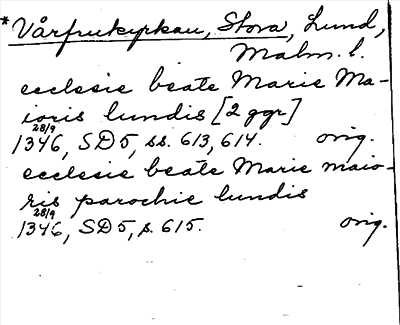 *Vårfrukyrkan, Stora, Lund,
Malm. l.
ecclesie beate Marie Ma-
ioris lundis [2 ggr]
28/9
1346, SD5, ss. 613, 614. orig.
ecclesie beate Marie maio-
ris parochie lundis
28/9
1346, SD5, s. 615. orig.